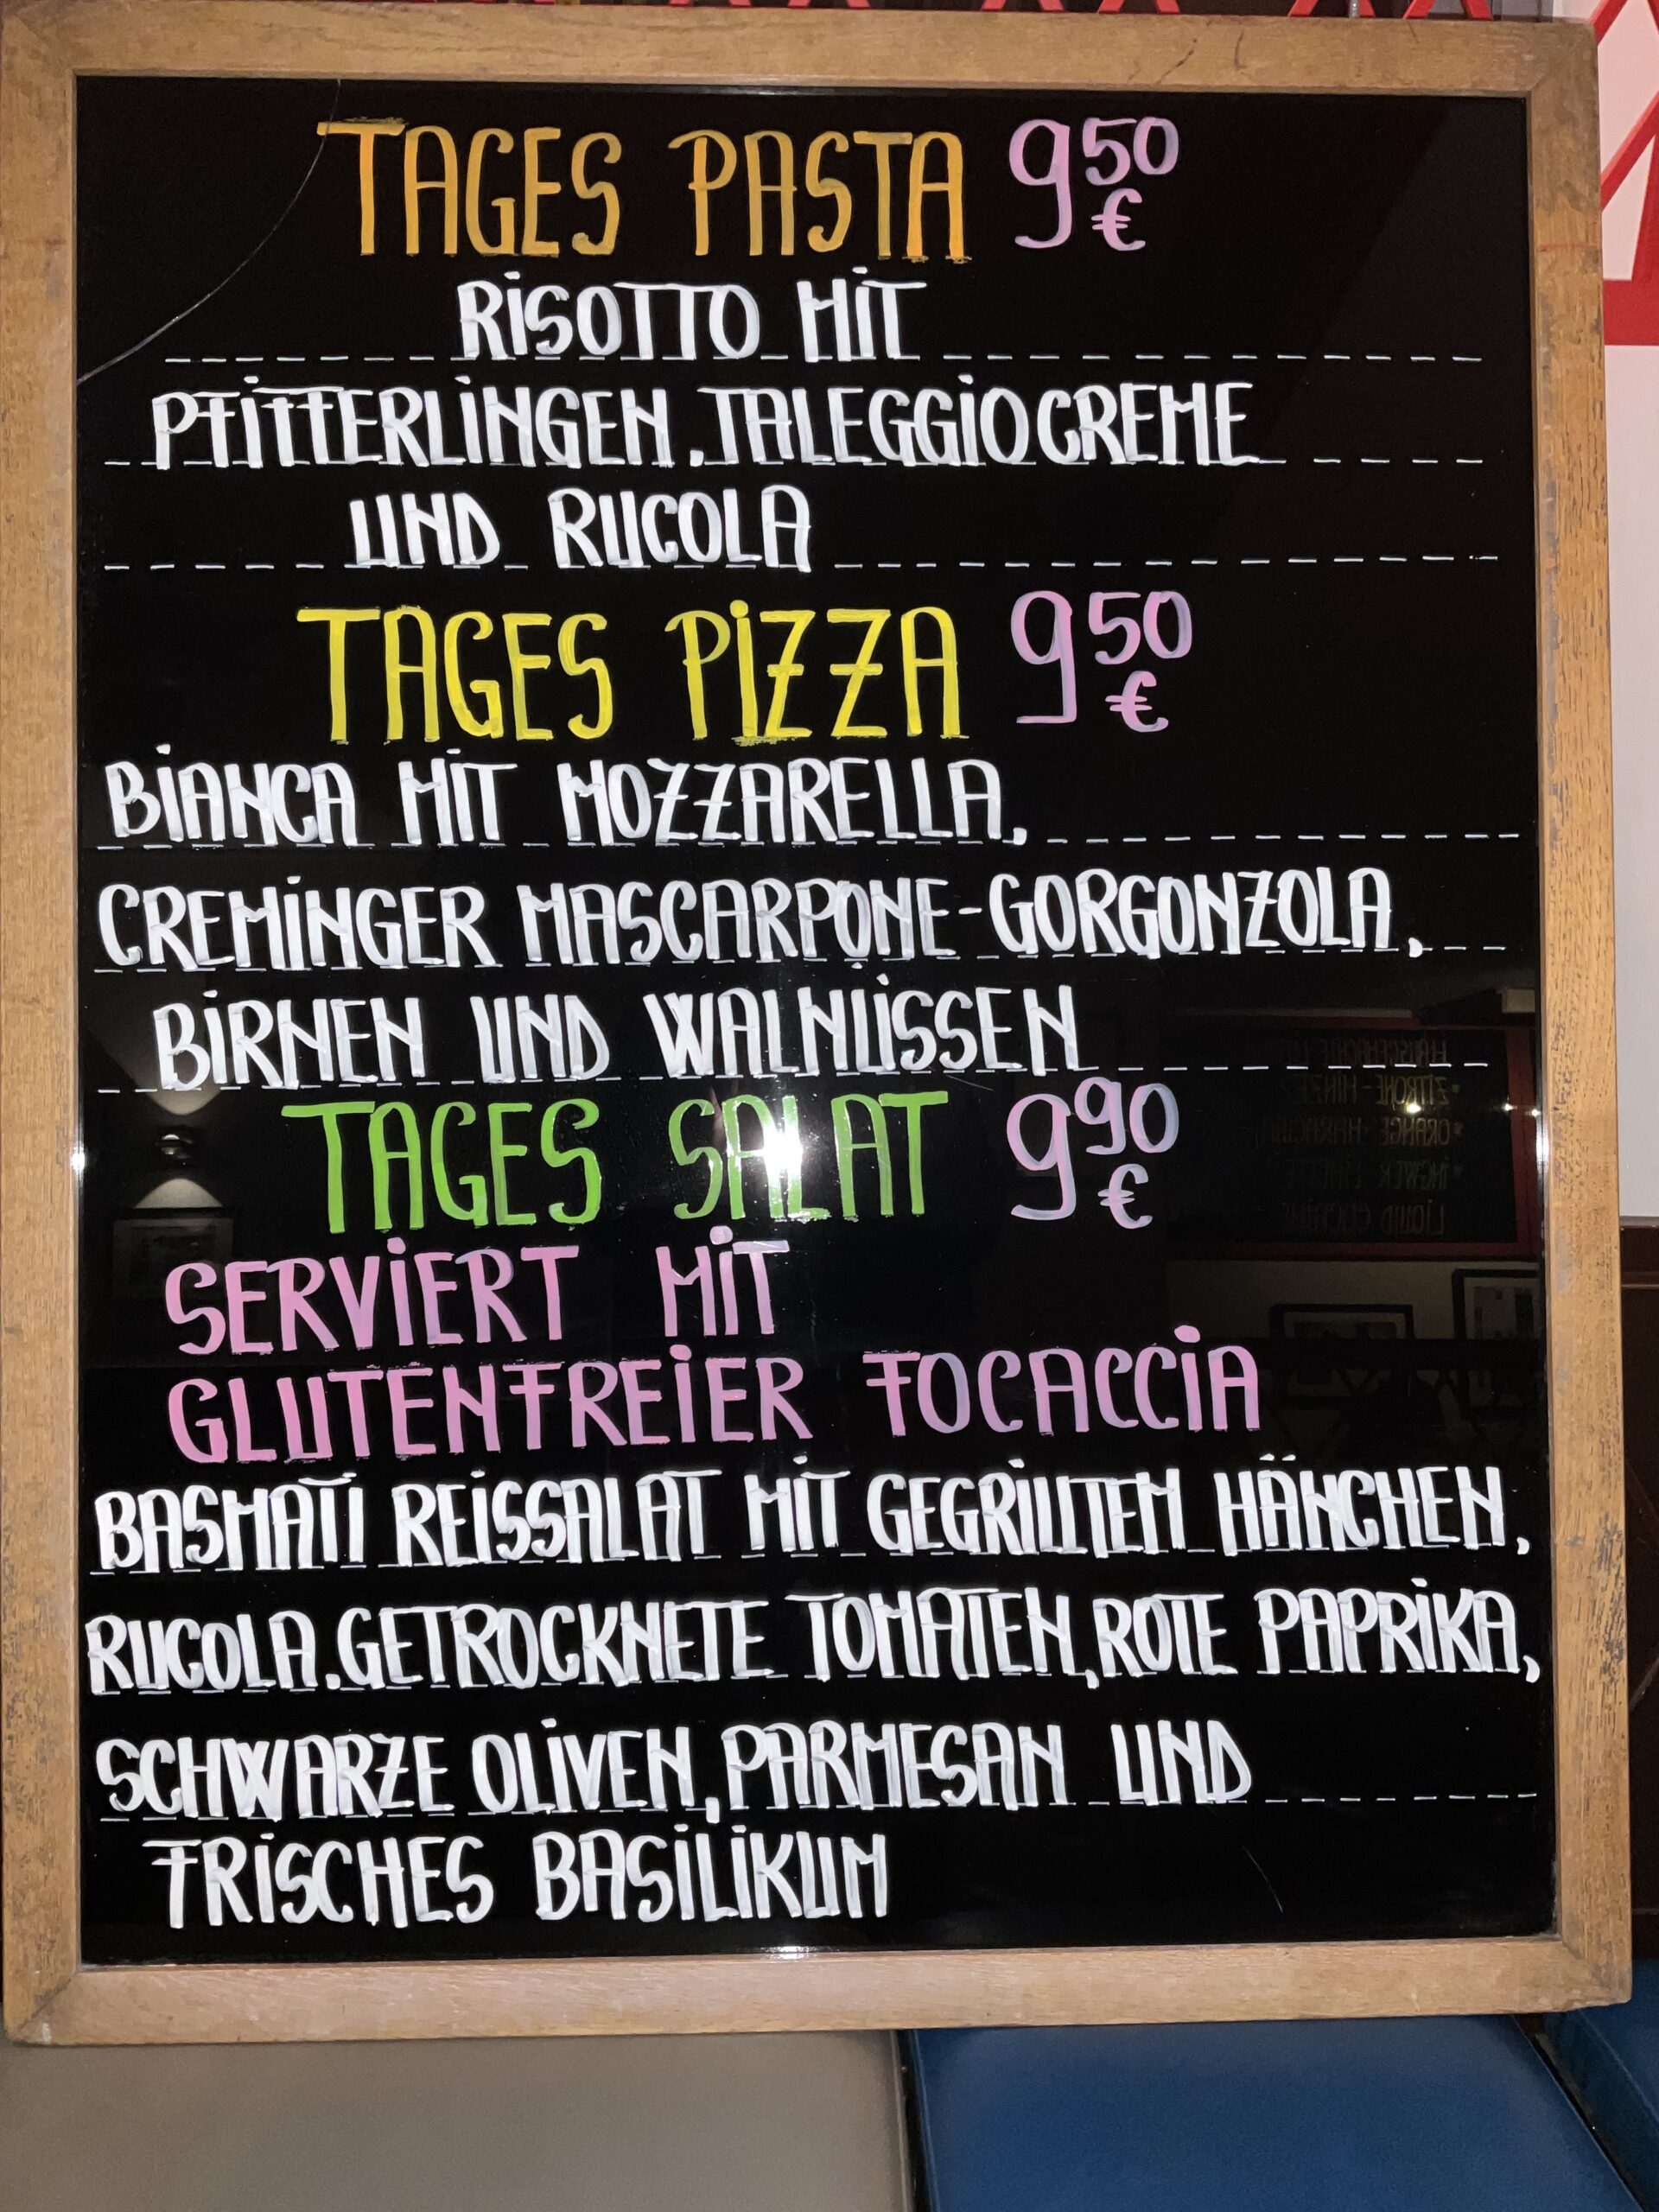 TAGES PASTA 9 50 €
RISOTTO MIT
PFIFFERLINGEN, TALEGGIOCREME
UND RUCOLA
TAGES PIZZA 9 50 €
BIANCA MIT MOZZARELLA,
CREMINGER MASCARPONE-GORGONZOLA,
BIRNEN UND WALNÜSSEN
TAGES SALAT 9 90 €
SERVIERT MIT
GLUTENFREIER FOCACCIA
BASMATI REISSALAT MIT GEGRILLTEM HÄNCHEN,
RUCOLA, GETROCKNETE TOMATEN, ROTE PAPRIKA,
SCHWARZE OLIVEN, PARMESAN UND
FRISCHES BASILIKUM